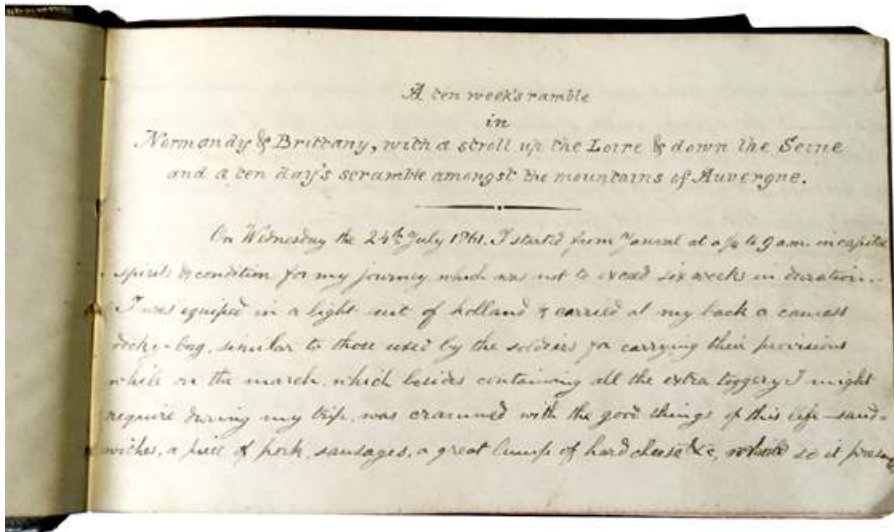 A ten week's ramble
in
Normandy & Brittany, with a stroll up the Loire & down the Seine
and a ten day's scramble amongst the mountains of Auvergne.
On Wednesday the 24th July 1861. I started from at a ¼ to 9 am. in capital
spirits & condition for my journey which was not to exceed six weeks in duration.
I was equiped in a light suit of holland & carried at my back a canvass
bag, similar to those used by the soldiers for carrying their provisions
while on the march, which besides containing all the extra toggery I might
require during my trip, was crammed with the good things of this life – sand-
wiches, a piece of pork, sausages, a great lump of hard cheese &c, so it